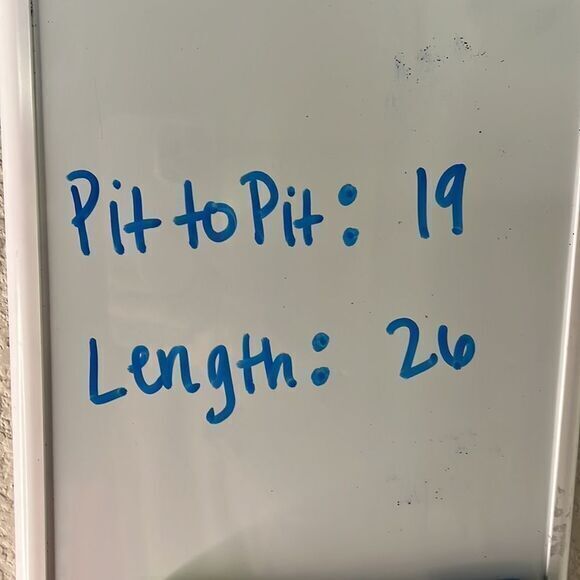 Pit to Pit: 19
Length: 26